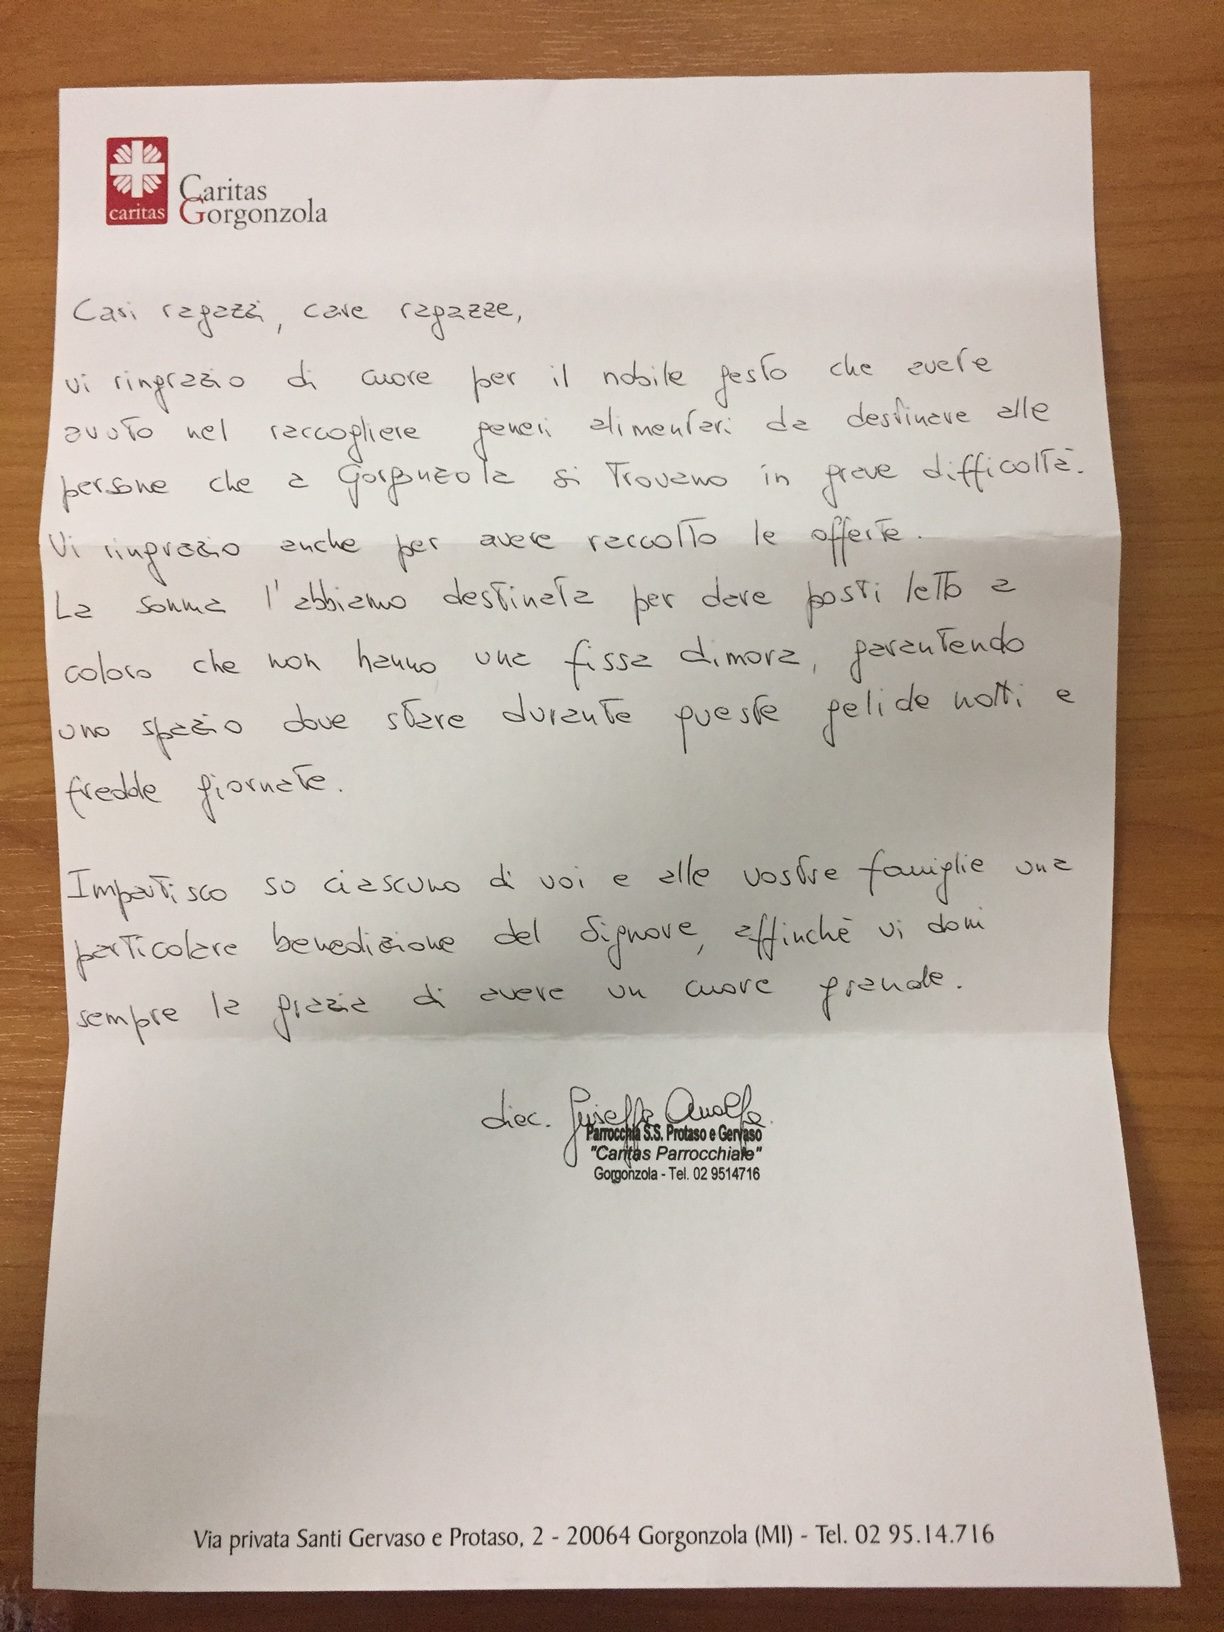 caritas
Caritas
Gorgonzola
Cari ragazzi, care ragazze,
vi ringrazio di cuore per il nobile gesto che avete
avuto nel raccogliere generi alimentari da destinare alle
persone che a Gorgonzola si trovano in grave difficoltà.
Vi ringrazio anche per avere raccolto le offerte.
La somma l'abbiamo destinata per dare posti letto a
coloro che non hanno una fissa dimora, garantendo
uno spazio dove stare durante queste gelide notti e
fredde giornate.
Impartisco su ciascuno di voi e alle vostre famiglie una
particolare benedizione del Signore, affinchè vi doni
sempre la grazia di avere un cuore grande.
diac.
Parrocchia S.S. Protaso e Gervaso
"Caritas Parrocchiale"
Gorgonzola - Tel. 02 9514716
Via privata Santi Gervaso e Protaso, 2 - 20064 Gorgonzola (MI) - Tel. 02 95.14.716